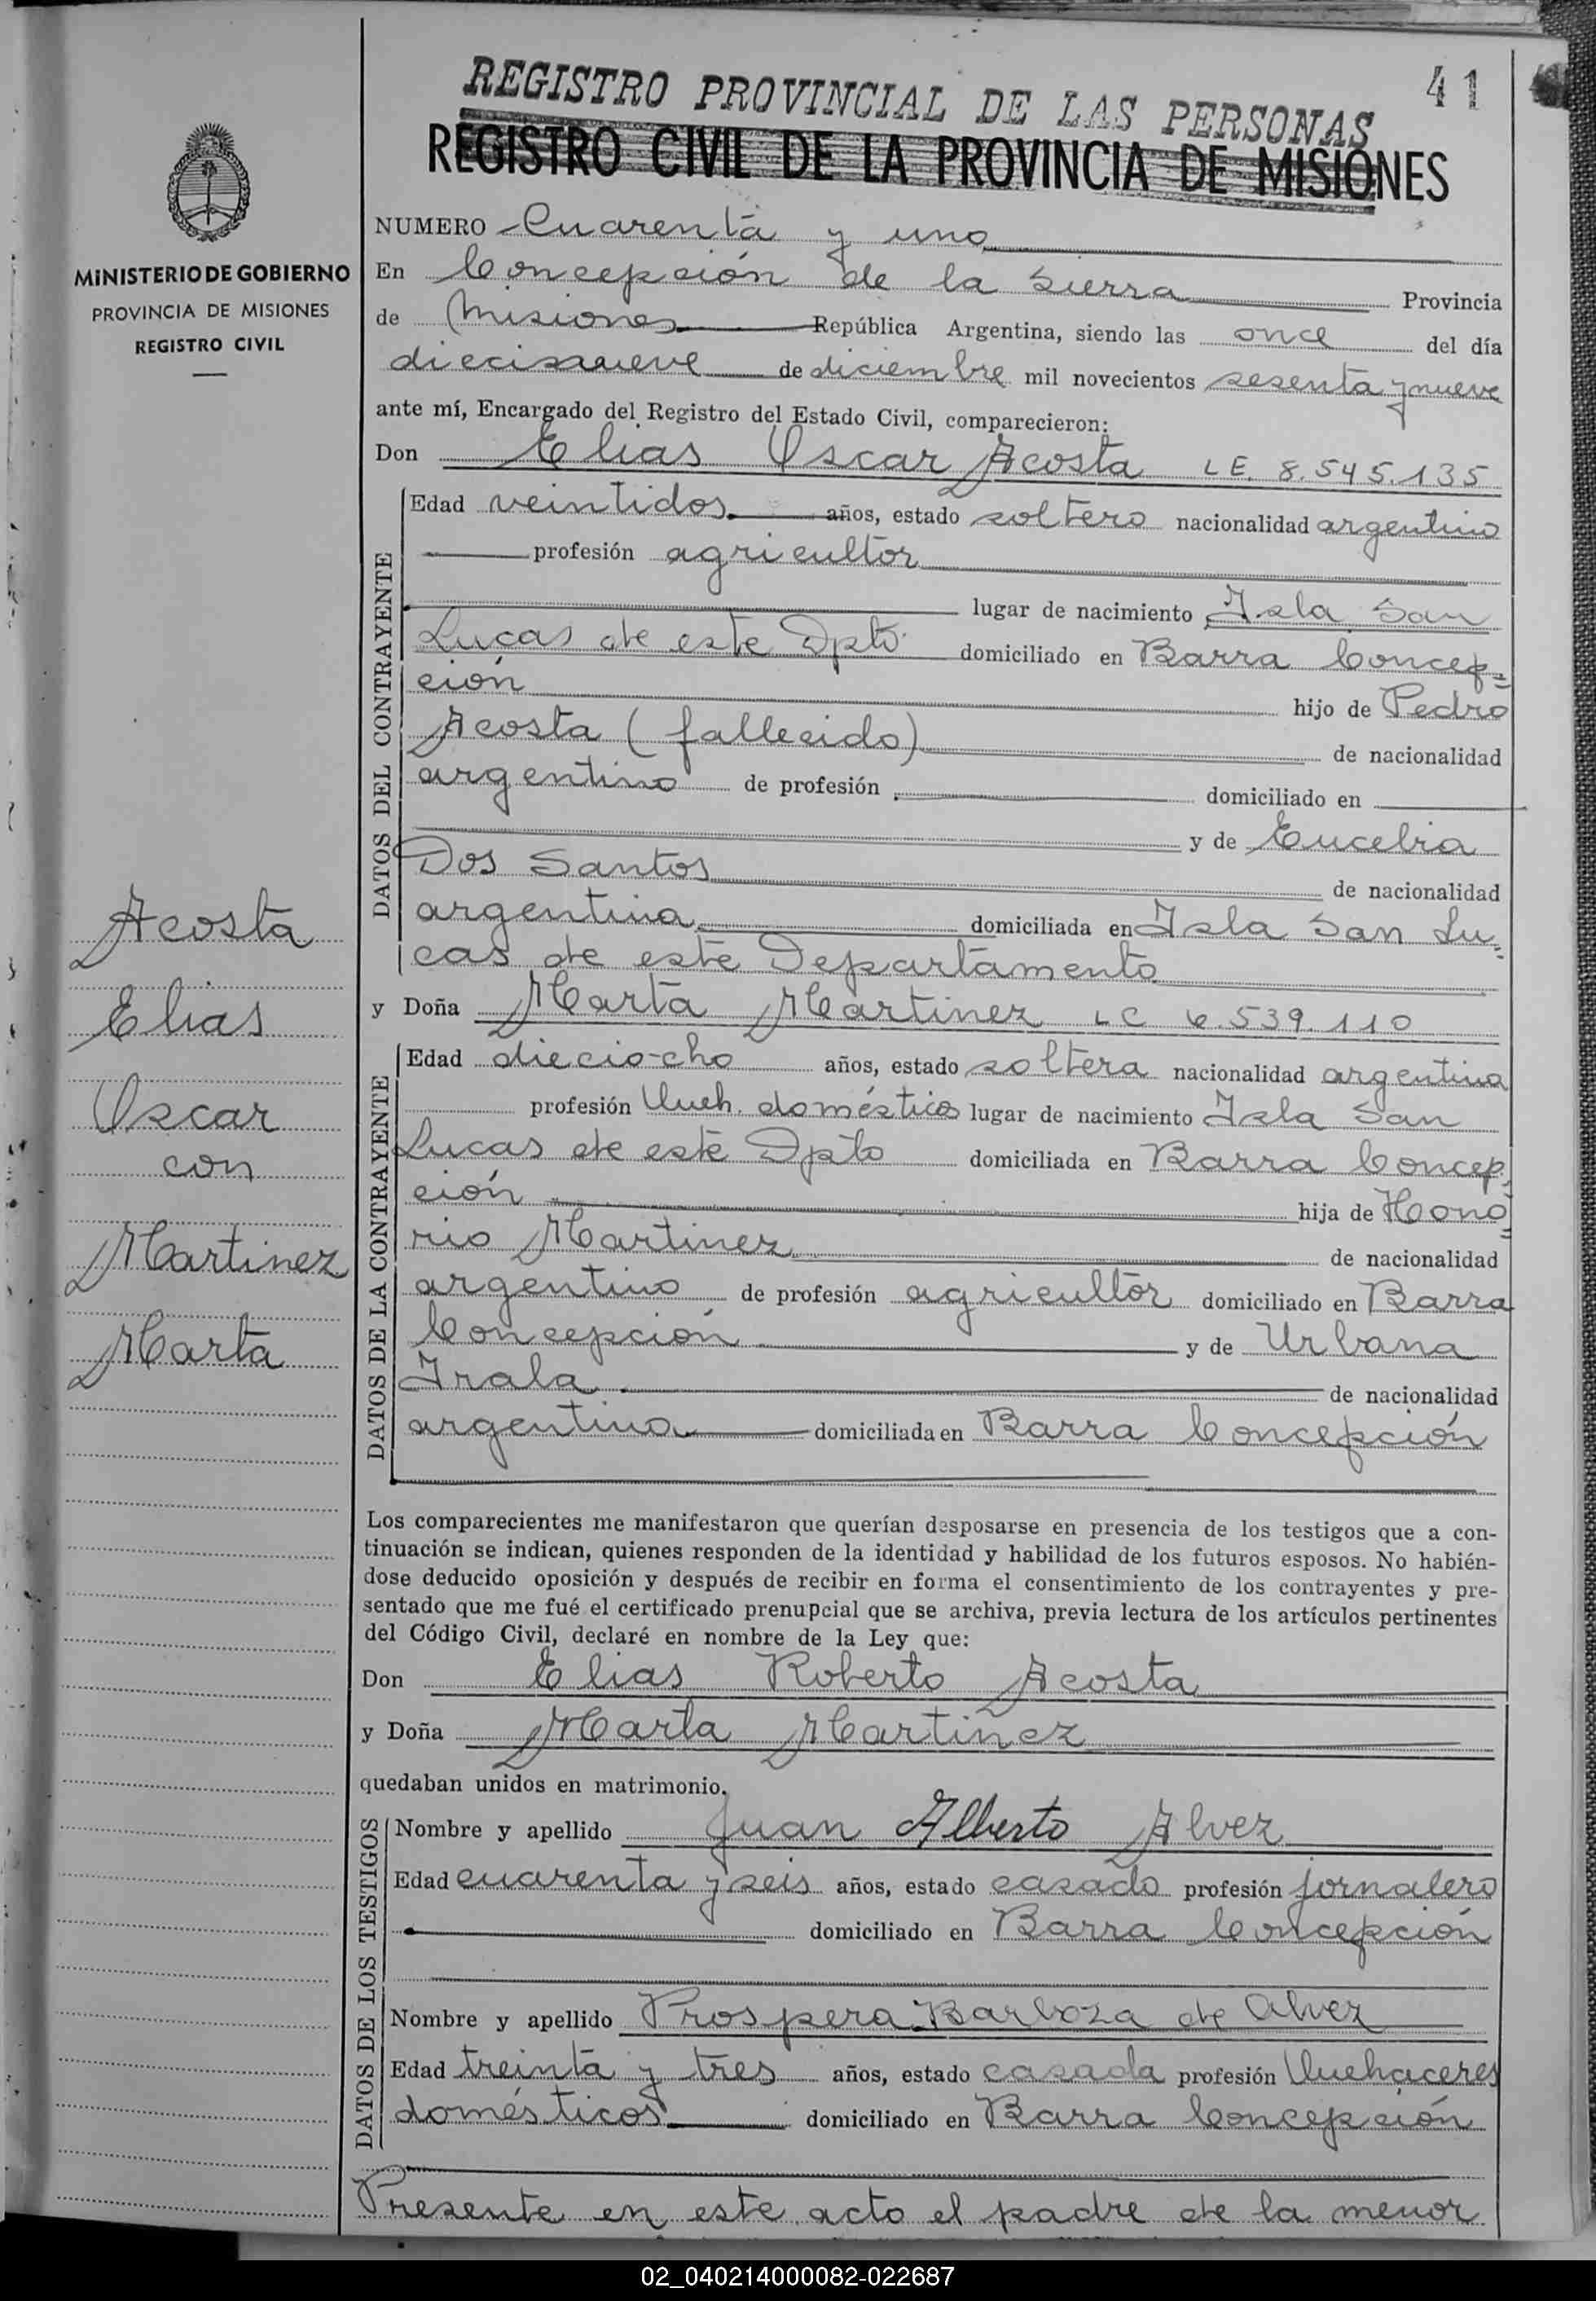 41
REGISTRO PROVINCIAL DE LAS PERSONAS
REGISTRO CIVIL DE LA PROVINCIA DE MISIONES
MINISTERIO DE GOBIERNO
PROVINCIA DE MISIONES
REGISTRO CIVIL
NUMERO Cuarenta y uno
En Concepción de la Sierra Provincia
de Misiones República Argentina, siendo las once del día
diecinueve de diciembre mil novecientos sesenta y nueve
ante mí, Encargado del Registro del Estado Civil, comparecieron:
Don Elias Oscar Acosta LE. 8.545.135
DATOS DEL CONTRAYENTE
Edad veintidos años, estado soltero nacionalidad argentino
profesión agricultor
lugar de nacimiento Isla San
Lucas de este Dpto. domiciliado en Barra Concep=
ción hijo de Pedro
Acosta (fallecido) de nacionalidad
argentino de profesión domiciliado en
y de Eucebia
Dos Santos de nacionalidad
argentina domiciliada en Isla San Lu=
cas de este Departamento
y Doña Marta Martinez LC 6.539.110
DATOS DE LA CONTRAYENTE
Edad dieciocho años, estado soltera nacionalidad argentina
profesión Queh. domésticos lugar de nacimiento Isla San
Lucas de este Dpto domiciliada en Barra Concep=
ción hija de Hono=
rio Martinez de nacionalidad
argentino de profesión agricultor domiciliado en Barra
Concepción y de Urbana
Irala de nacionalidad
argentina domiciliada en Barra Concepción
Acosta
Elias
Oscar
con
Martinez
Marta
Los comparecientes me manifestaron que querían desposarse en presencia de los testigos que a con-
tinuación se indican, quienes responden de la identidad y habilidad de los futuros esposos. No habién-
dose deducido oposición y después de recibir en forma el consentimiento de los contrayentes y pre-
sentado que me fué el certificado prenupcial que se archiva, previa lectura de los artículos pertinentes
del Código Civil, declaré en nombre de la Ley que:
Don Elias Roberto Acosta
y Doña Marta Martinez
quedaban unidos en matrimonio.
DATOS DE LOS TESTIGOS
Nombre y apellido Juan Alberto Alvez
Edad cuarenta y seis años, estado casado profesión jornalero
domiciliado en Barra Concepción
Nombre y apellido Prospera Barboza de Alvez
Edad treinta y tres años, estado casada profesión Quehaceres
domésticos domiciliado en Barra Concepción
Presente en este acto el padre de la menor
02_040214000082-022687